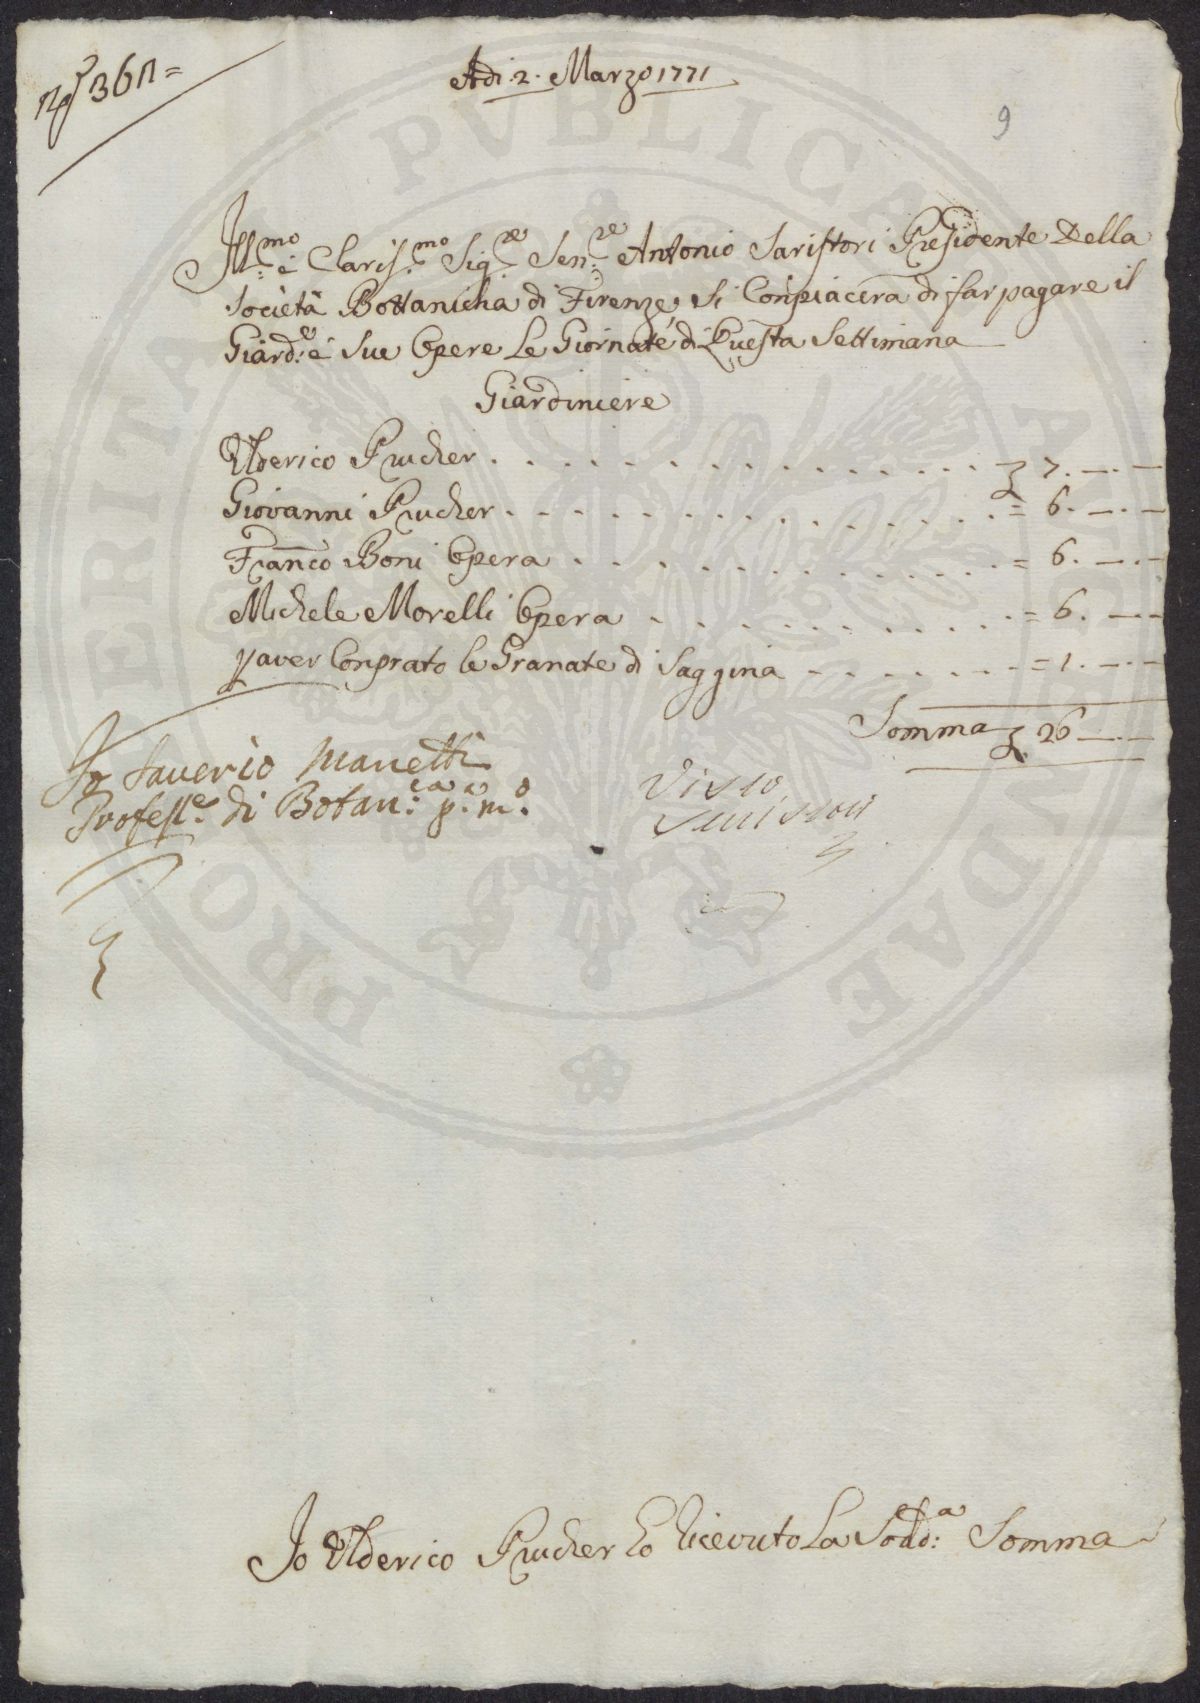 Adi. 2. Marzo 1771
9
Ill:mo é Claris.mo Sig:re Sen:re Antonio Saristori Presidente Della
Società Bottanicha di Firenze, Si Conpiacera di far pagare il
Giard:e é Sue Opere Le Giornate di Questa Settimana
Giardiniere
Ulderico Prucher . . . . . . . . . . . . . . . . £ 7. —. —
Giovanni Prucher . . . . . . . . . . . . . . . . = 6. —. —
Franco Boni Opera . . . . . . . . . . . . . . = 6. —. —
Michele Morelli Opera . . . . . . . . . . . . = 6. —. —
p aver Conprato le Granate di Saggina . . . . . . . = 1. —. —
Somma £ 26 —. —
Io Saverio Manetti
Profess.e di Botan:ca p.a m.o
Visto
Io Ulderico Prucher ho Ricevuto La Sodd:a Somma
PRO PERITATI PVBLICAE AVGENDAE